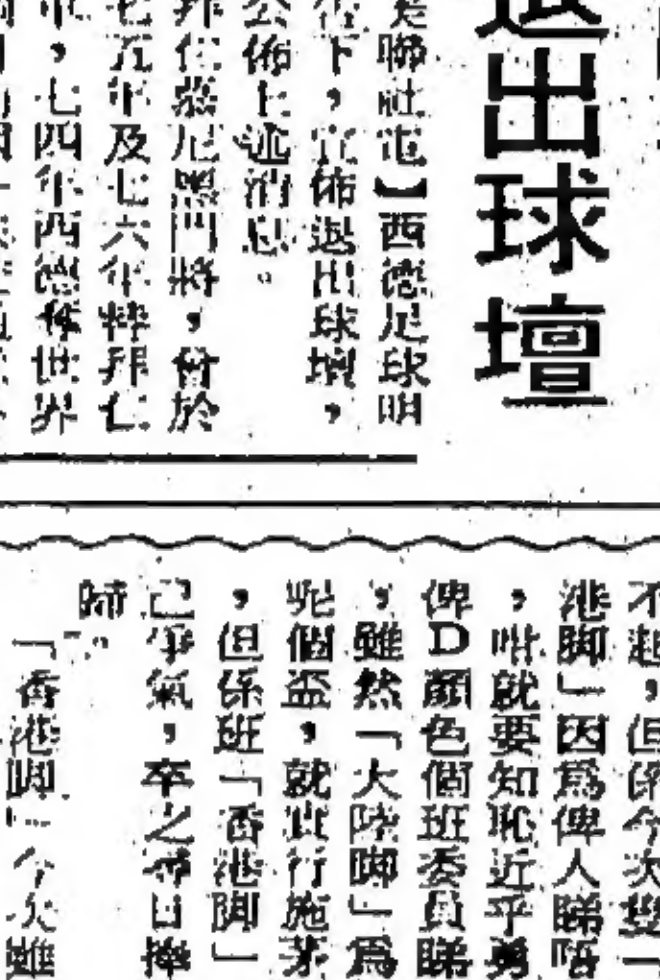 退出球壇
美聯社電】西德足球明
下，宣佈退出球壇，
公佈上述消息。
拜仁慕尼黑門將，曾於
七五年及七六年轉拜仁
，七四年西德奪世界
不起，但係今次雙「
港脚」因爲俾人睇
，咁就要知恥近乎勇
俾D顏色個班委員睇
，雖然「大陸脚」爲
呢個盃，就實行施茅
，但係班「香港脚」
已爭氣，卒之
歸」。
「香港脚」今次雖